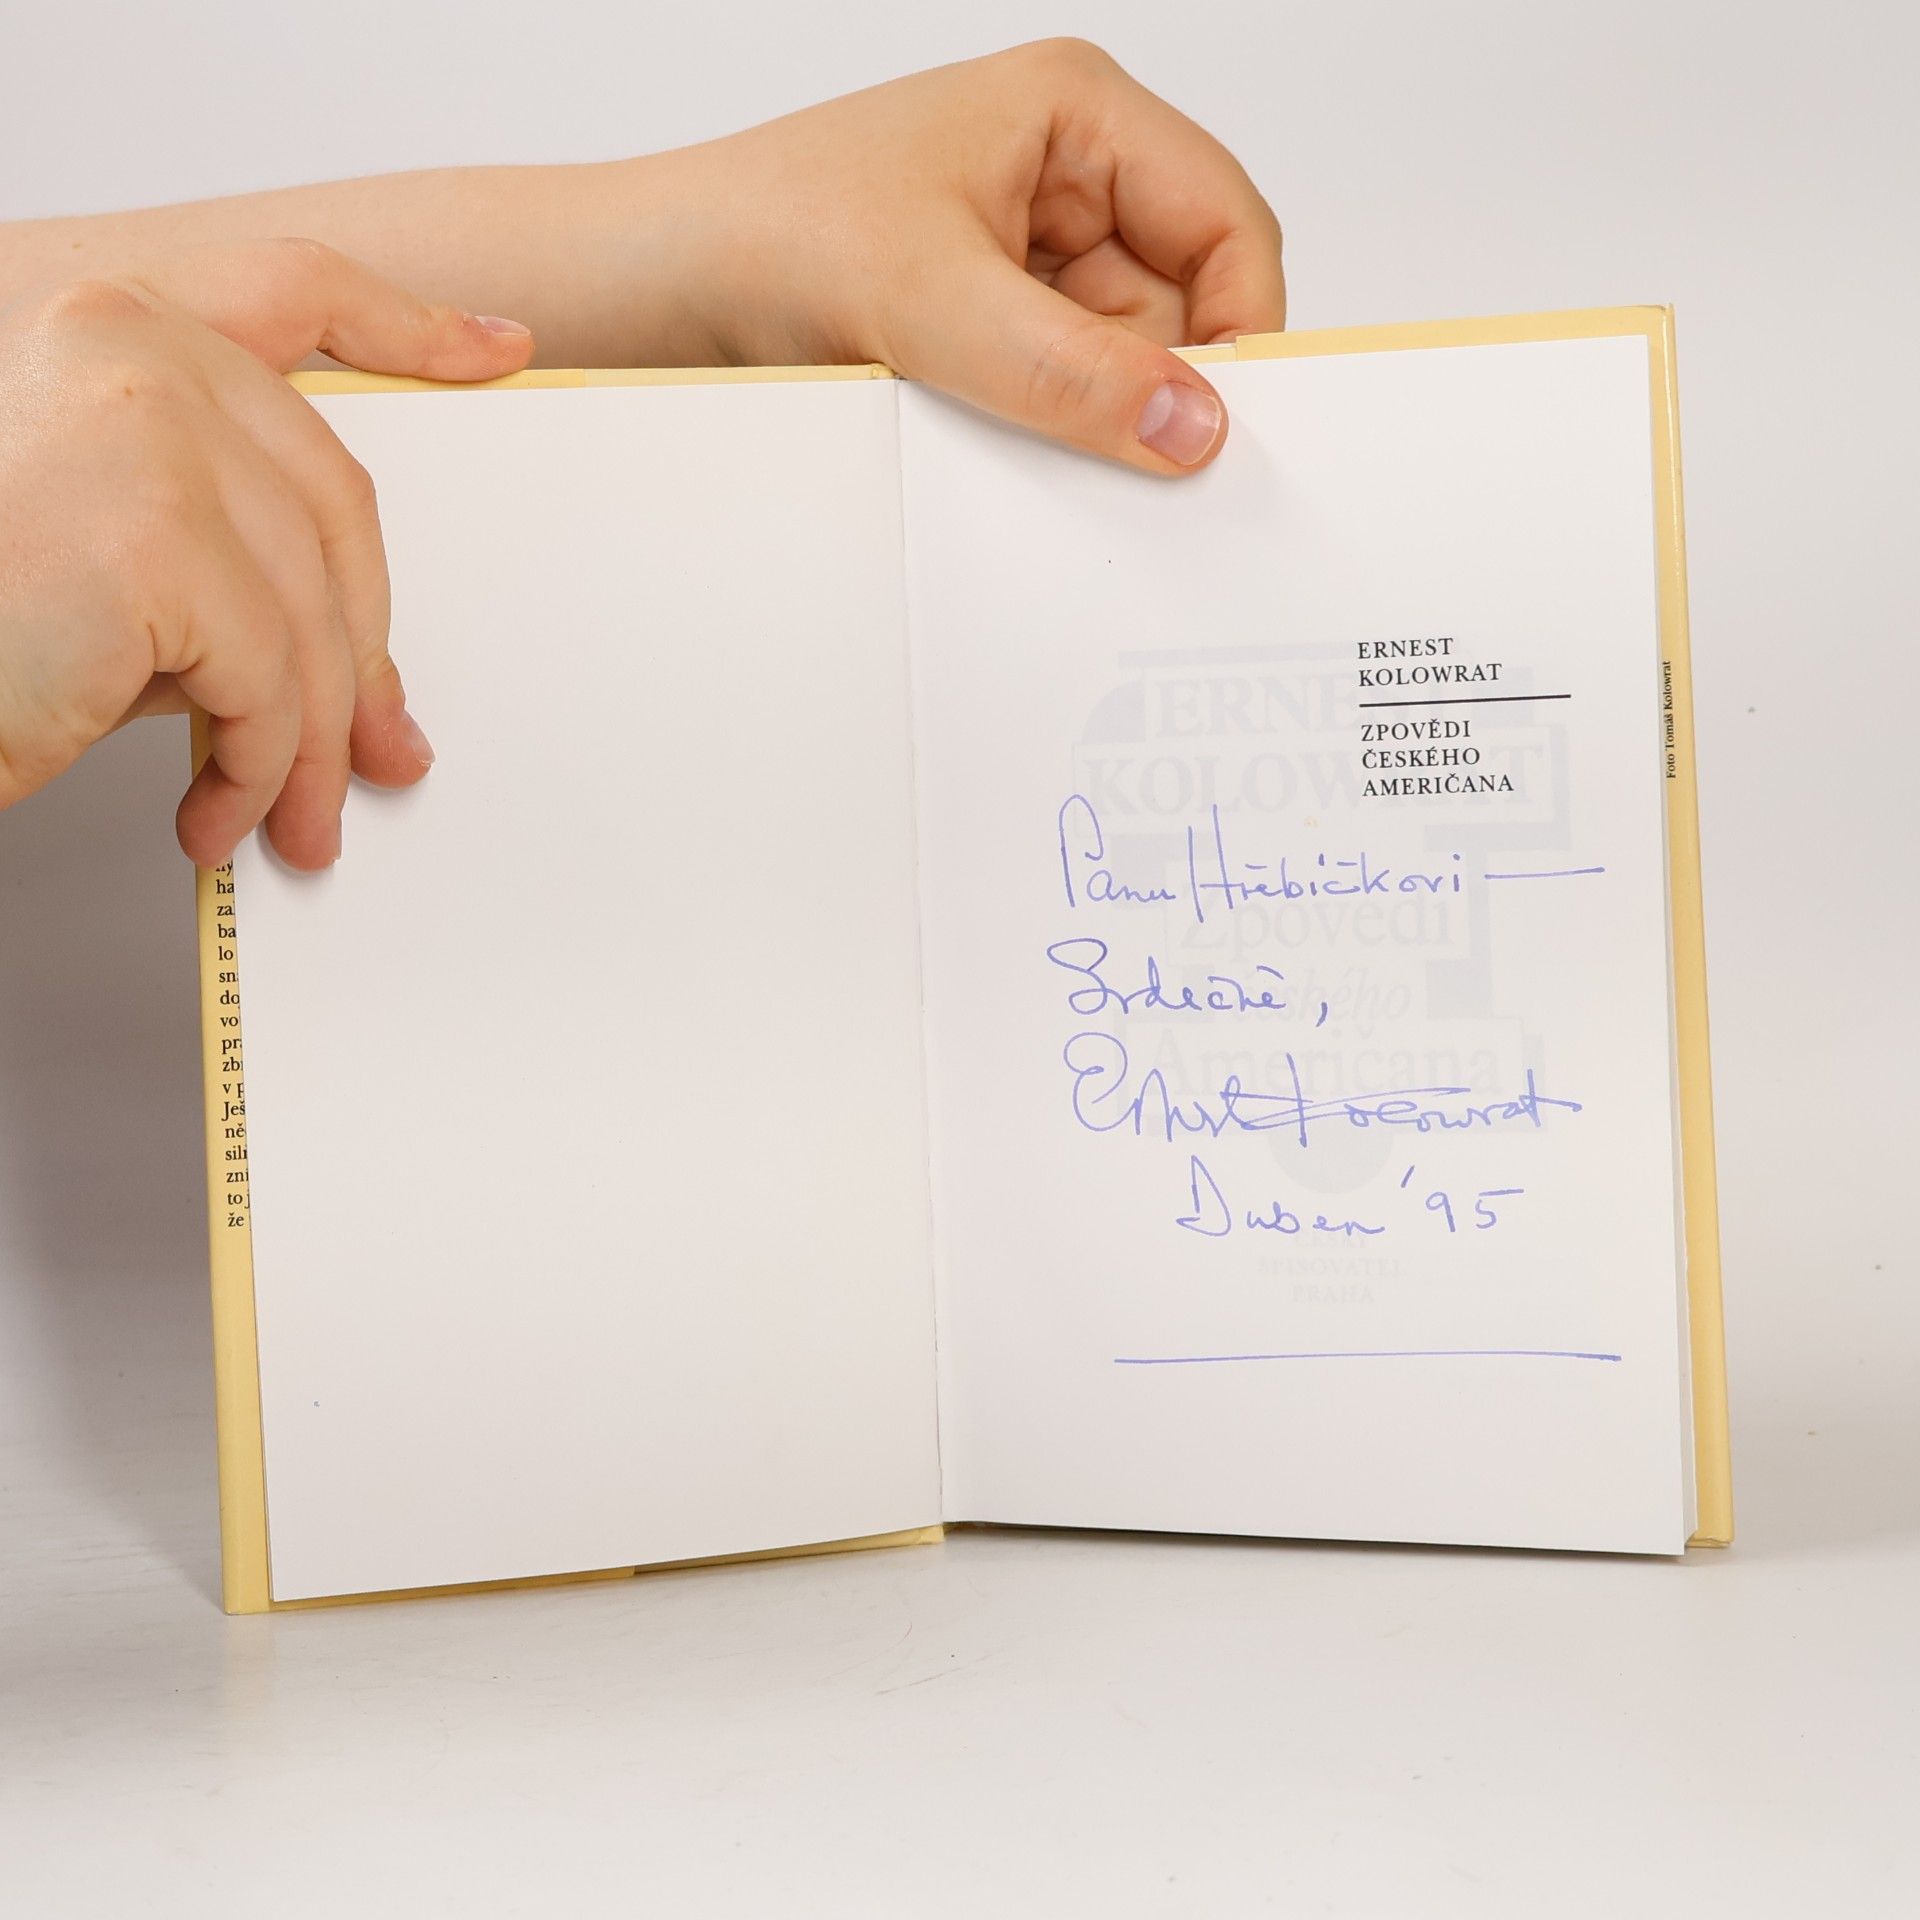 ha
za
ba
lo
sn
do
vo
pr
zb
v p
Ješ
ně
sil
zni
to j
že
ERNEST
KOLOWRAT
ZPOVĚDI
ČESKÉHO
AMERIČANA
Panu Hřebíčkovi —
Srdečně,
Ernest Kolowrat
Duben '95
ERNEST
KOLOWRAT
Zpovědi
českého
Američana
ČESKÝ
SPISOVATEL
PRAHA
Foto Tomáš Kolowrat